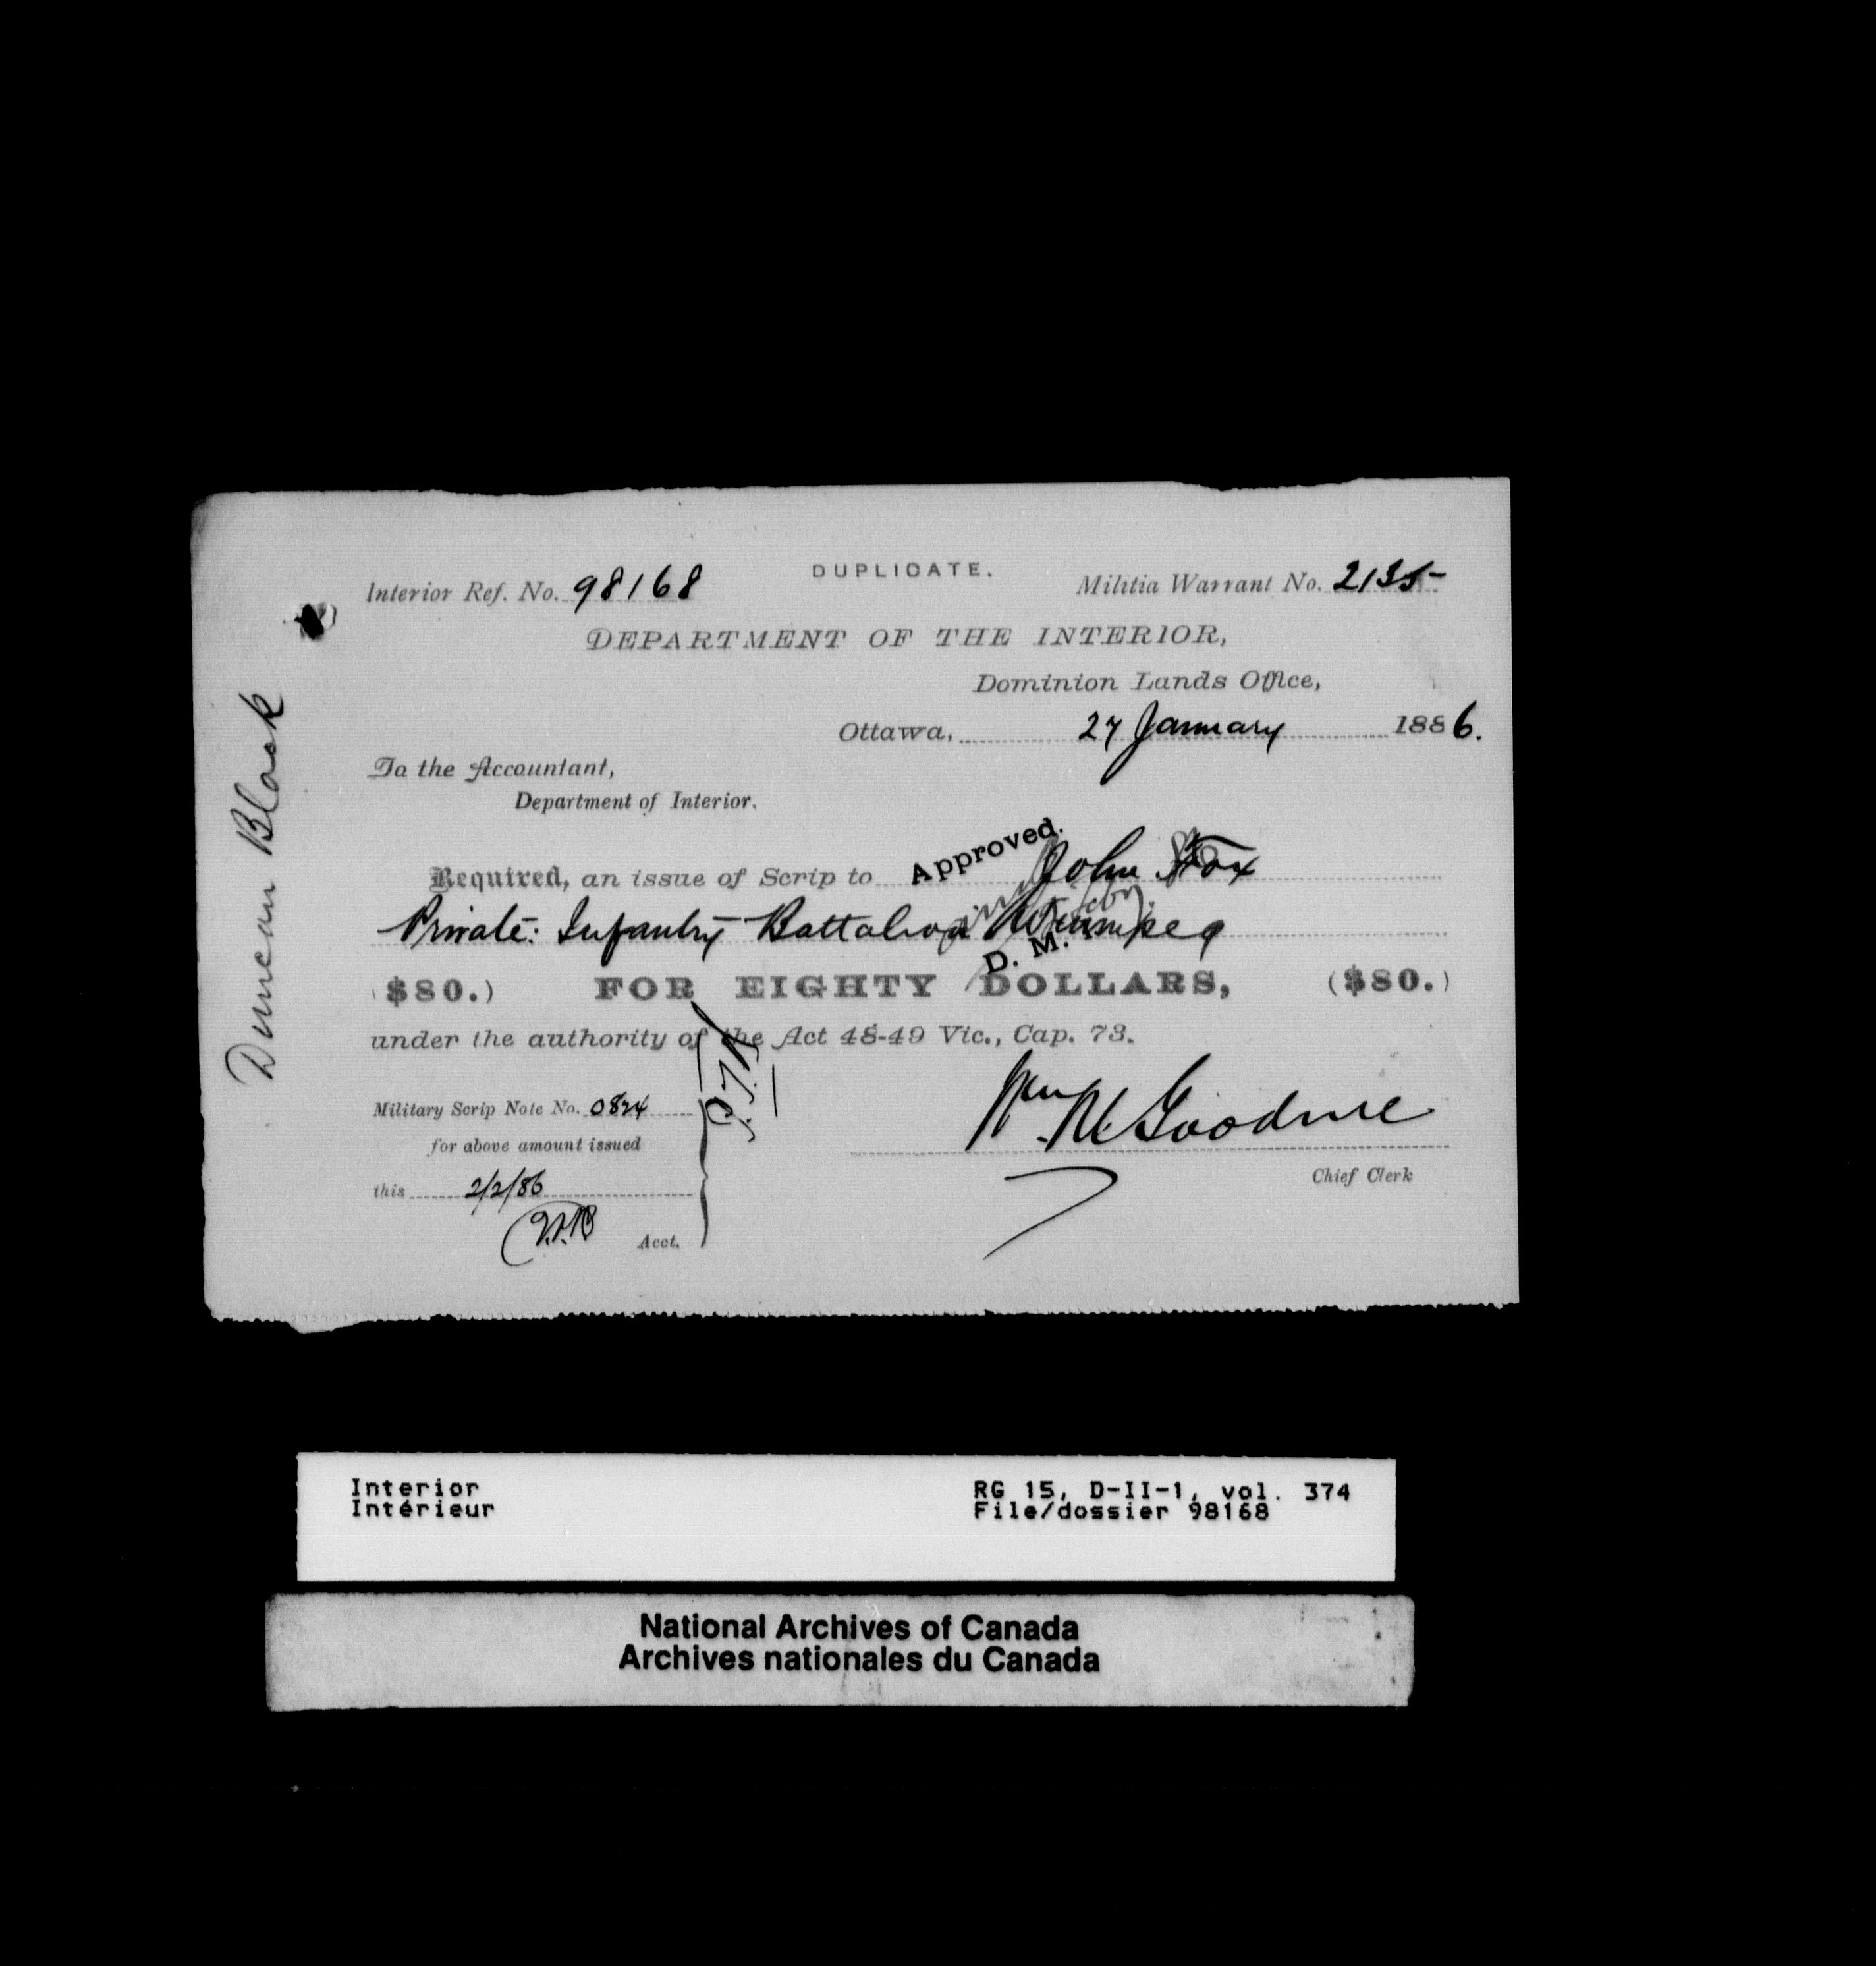 DUPLICATE.
Interior Ref. No. 98168
Militia Warrant No. 2135
DEPARTMENT OF THE INTERIOR,
Dominion Lands Office,
Ottawa, 27 January 1886.
To the Accountant,
Department of Interior.
Approved.
Required, an issue of Scrip to John Fox
Private: Infantry Battalion Winnipeg
D. M.
($80.) FOR EIGHTY DOLLARS, ($80.)
under the authority of the Act 48-49 Vic., Cap. 73.
Military Scrip Note No. 0874
for above amount issued
this 2/2/86
Acct.
Wm. M. Goodeve
Chief Clerk
Duncan Black
Interior
Intérieur
RG 15, D-II-1, vol. 374
File/dossier 98168
National Archives of Canada
Archives nationales du Canada